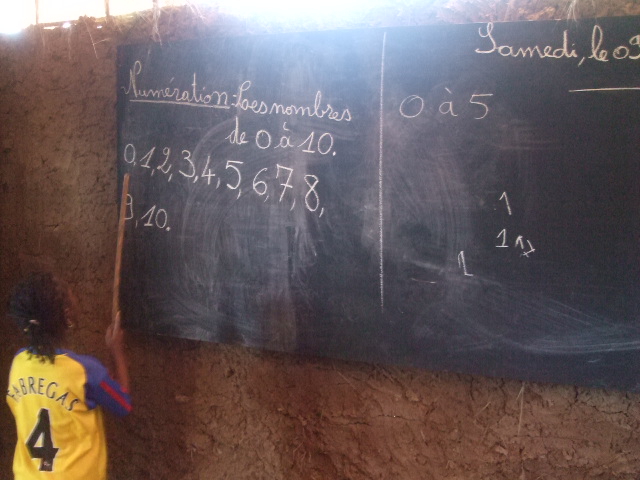 Numération: Les nombres
de 0 à 10.
0, 1, 2, 3, 4, 5, 6, 7, 8,
9, 10.
Samedi, le 09
0 à 5
1
1
1
FABREGAS
4